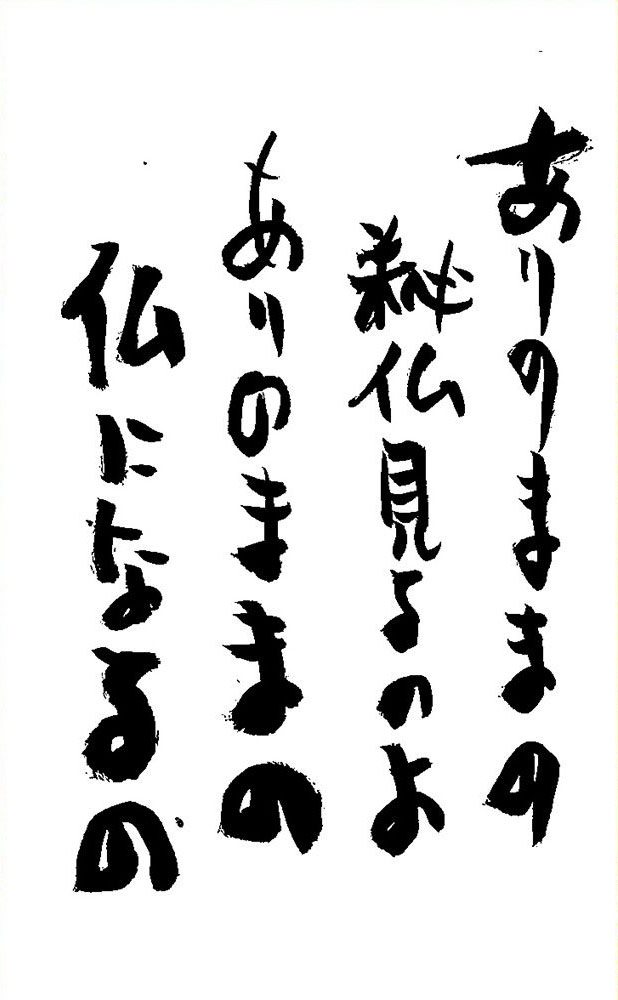 ありのままの
秘仏見るのよ
ありのままの
仏になるの